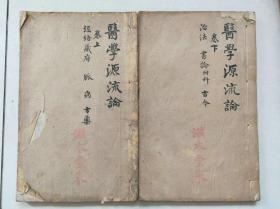 醫學源流論
卷下
治法 書論 古今
醫學源流論
卷上
經絡藏府 脉 病 方藥